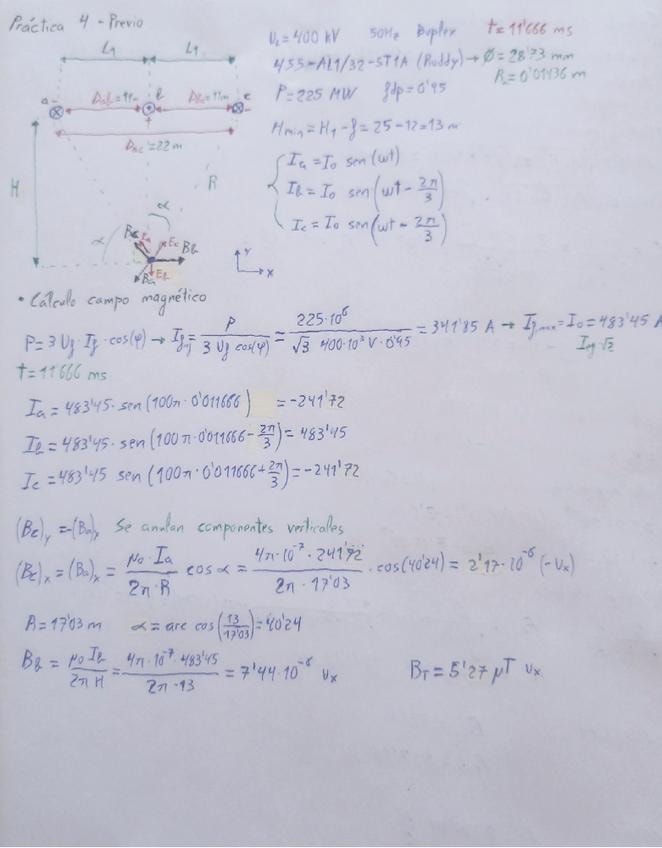 Práctica 4 - Previo
U_L = 400 kV 50Hz Duplex t = 11'666 ms
455-AL1/32-ST1A (Ruddy) → Ø = 28'73 mm
P = 225 MW fdp = 0'95
H_min = H_1 - f = 25 - 12 = 13 m
I_a = I_0 sen(ωt)
I_b = I_0 sen(ωt - 2π/3)
I_c = I_0 sen(ωt - 2π/3)
L_1 L_1
a b c
D_ab = 11m D_bc = 11m
D_ac = 22 m
H R
α α
B_c I_a E_c B_b
B_a E_b
Y
X
• Cálculo campo magnético
P = 3 U_f · I_f · cos(φ) → I_f = P / (3 U_f cos(φ)) = 225·10^6 / (√3 400·10^3 V · 0'95) = 341'85 A → I_f max = I_0 = 483'45 A
t = 11'666 ms
I_a = 483'45 · sen(100π · 0'011666) = -241'72
I_b = 483'45 · sen(100π · 0'011666 - 2π/3) = 483'45
I_c = 483'45 sen(100π · 0'011666 + 2π/3) = -241'72
(B_c)_y = -(B_a)_y Se anulan componentes verticales
(B_c)_x = (B_a)_x = μ_0 · I_a / (2π · R) cos α = 4π·10^-7 · 241'72 / (2π · 17'03) · cos(40'24) = 2'17·10^-6 (-u_x)
R = 17'03 m α = arc cos(13/17'03) = 40'24
B_b = μ_0 I_b / (2π H) = 4π·10^-7 · 483'45 / (2π · 13) = 7'44·10^-6 u_x B_T = 5'27 μT u_x